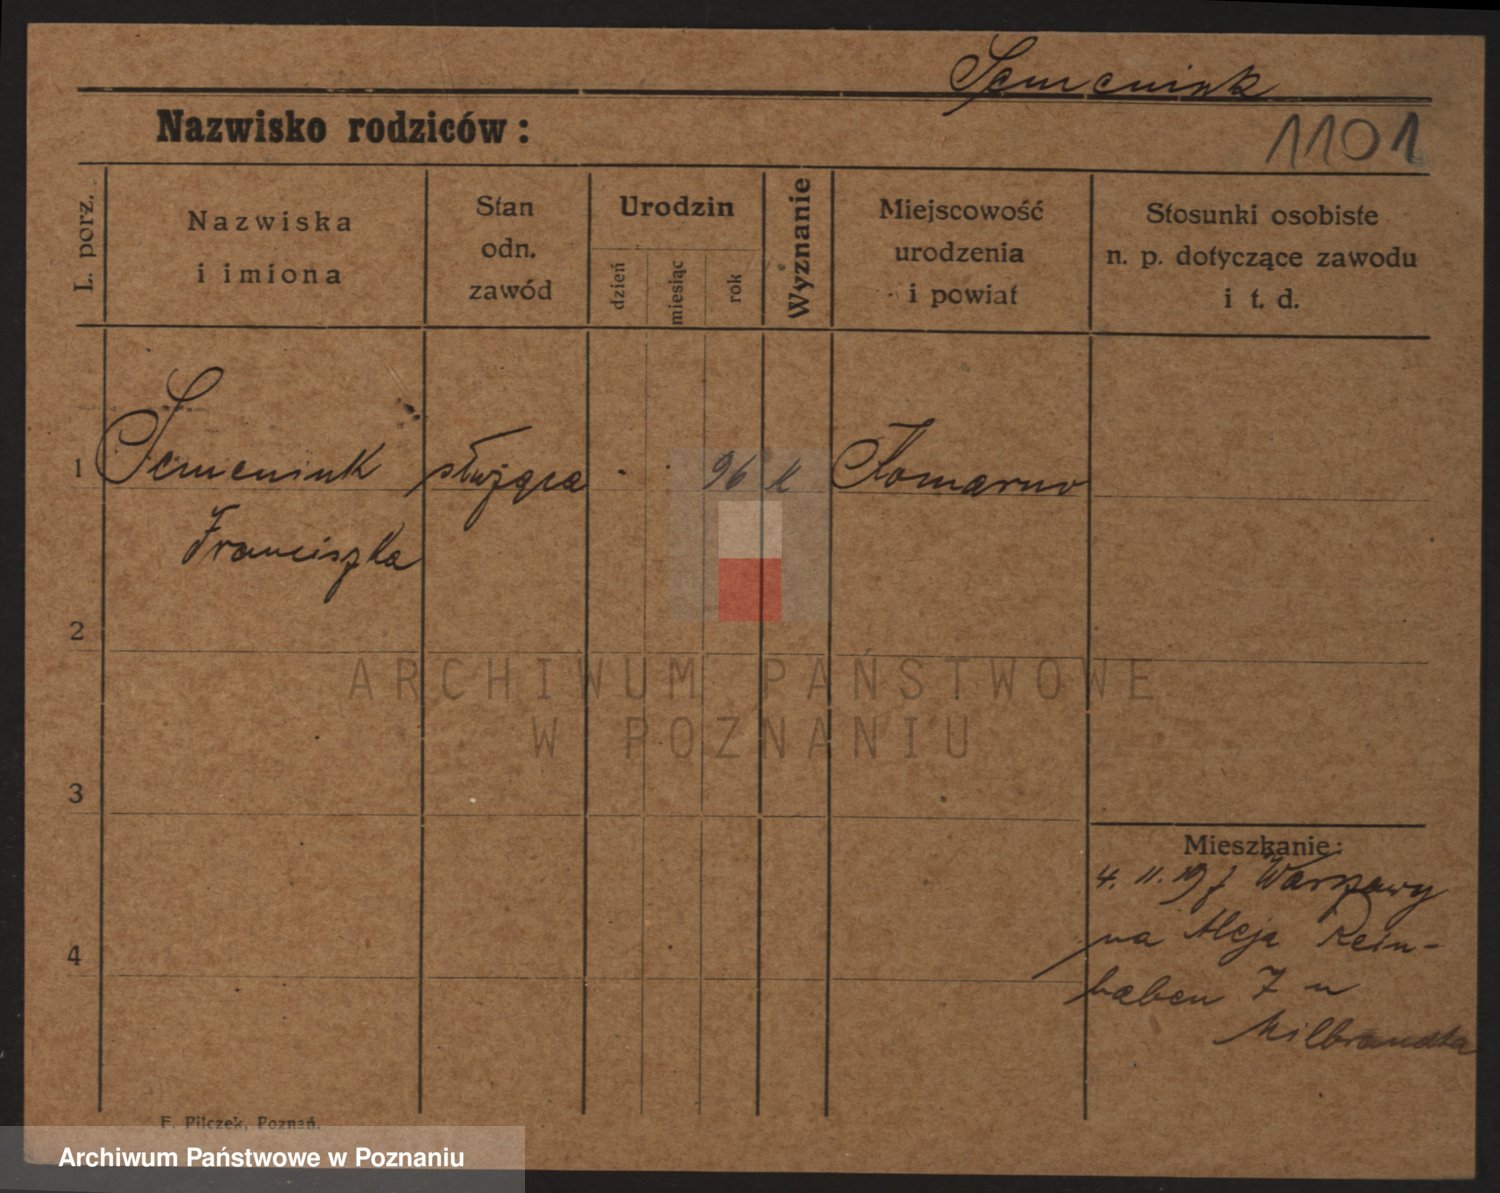 Semeniuk
Nazwisko rodziców:
1101
L. porz.
Nazwiska
i imiona
Stan
odn.
zawód
Urodzin
dzień
miesiąc
rok
Wyznanie
Miejscowość
urodzenia
i powiat
Stosunki osobiste
n. p. dotyczące zawodu
i t. d.
1 Semeniuk służąca 96 k Komarno
Franciszka
2
ARCHIWUM PAŃSTWOWE
W POZNANIU
3
Mieszkanie:
4. 11. 19 z Warszawy
na Aleja Rein-
baben 7 u
Milbrandta
4
F. Pilczek, Poznań.
Archiwum Państwowe w Poznaniu